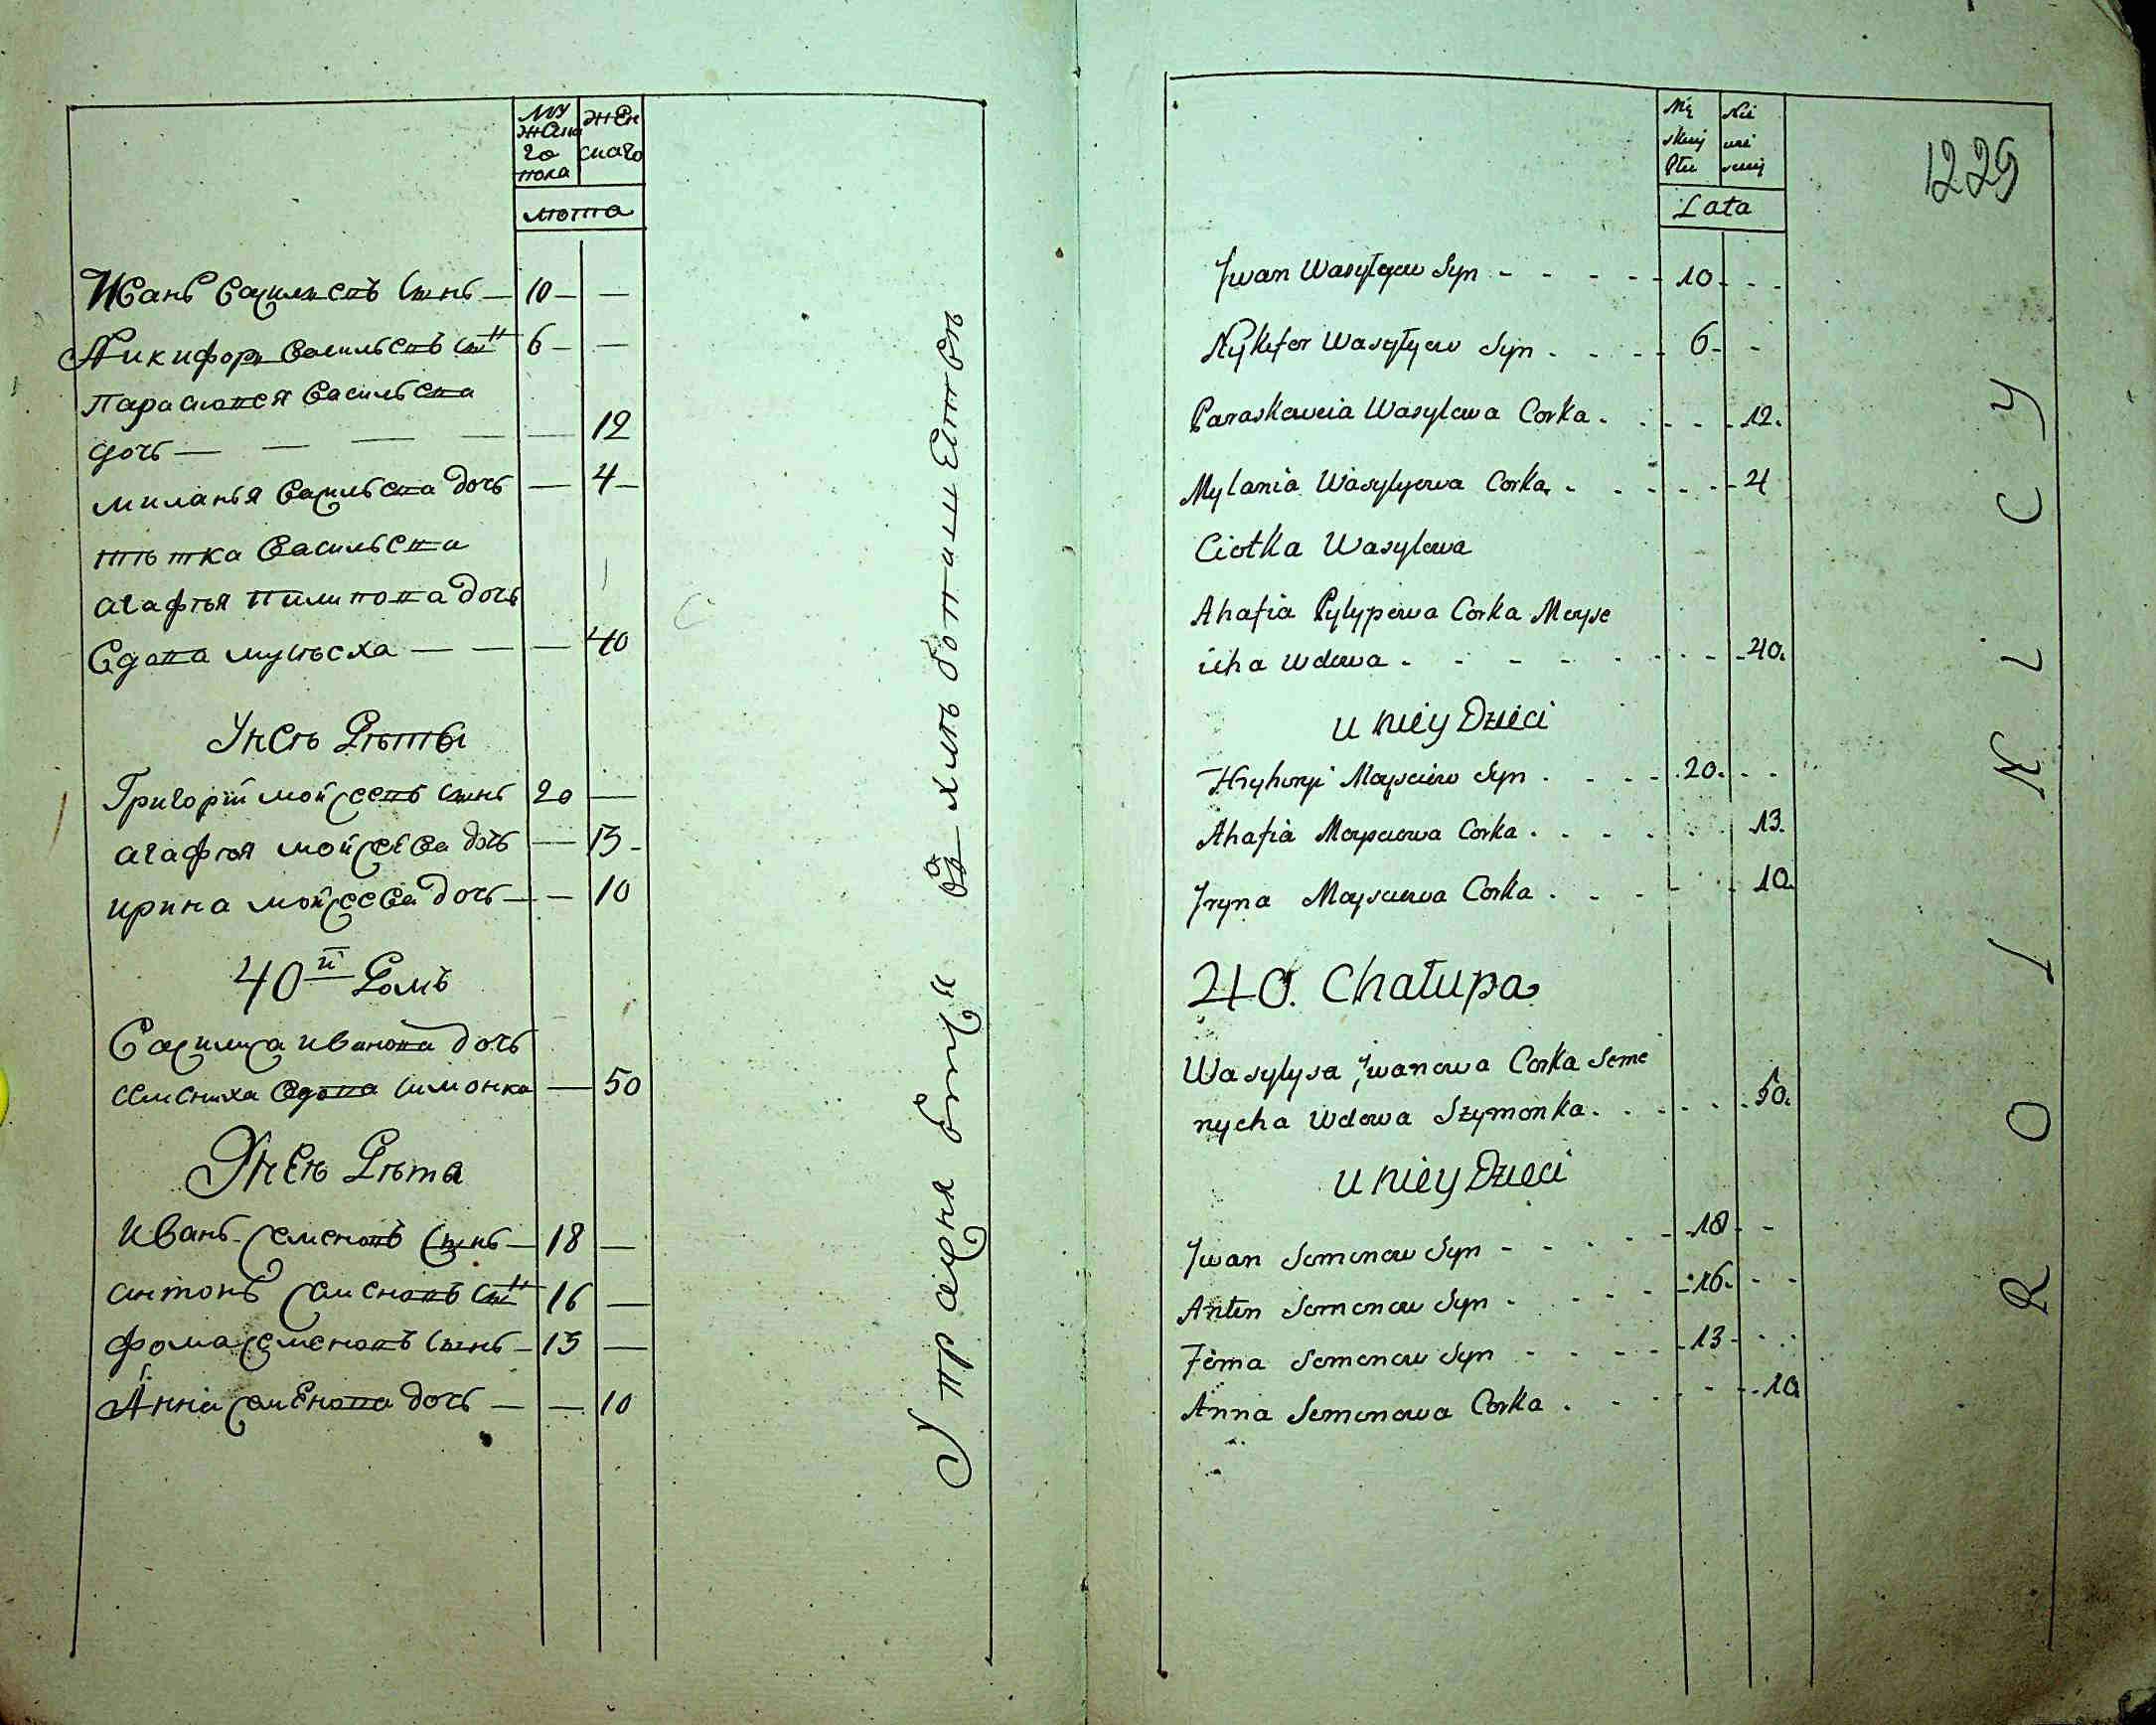 му
жска
го
пола
жен
скаго
лѣта
Иванъ Васильевъ сынъ — 10 — —
Никифоръ Васильевъ сынъ 6 — —
Парасковея Васильева
дочь — — — — — 12
миланья Васильева дочь — 4 —
тѣтка Васильева
агафья Пилипова дочь
вдова муисѣ‌ха — — — 40
У неѣ Дѣты
Григорій мойсеевъ сынъ 20 —
агафья мойсеева дочь — 13 -
ирина мойсеева дочь — — 10
40й Домъ
Василиса иванова дочь
семениха вдова симонка — 50
У неѣ Дѣта
иванъ семеновъ сынъ — 18 —
антонъ семеновъ сынъ 16 —
фома семеновъ сынъ — 13 —
Анна семенова дочь — — 10
Mę
skiey
Płci
Nie
wie
sciej
Lata
1229
Jwan Wasylyew Syn - - - - - 10 - - -
Nykifor Wasylyew Syn . - - - 6 - -
Paraskeweia Wasylewa Corka . . . - - 12.
Mylania Wasylyewa Corka. - - - - - - 4
Ciotka Wasylewa
Ahafia Pylypowa Corka Moyse
icha Wdowa . - - - - - - - - 40.
u niey Dzieci
Hryhoryi Moysciew Syn . - - - . 20. - -
Ahafia Moysciowa Corka . . . . . . . 13.
Jryna Moysiewa Corka . . - - . - 10.
40. Chałupa
Wasylysa Jwanowa Corka Seme
nycha Wdowa Szymonka . . - - . . 50.
u niey Dzieci
Jwan Semenow Syn - - - - - - 18 - -
Anton Semenow Syn - - - - - 16. - -
Foma Semenow Syn - - - - - 13 - . .
Anna Semenowa Corka . - - - - . 10.
ROLNICY